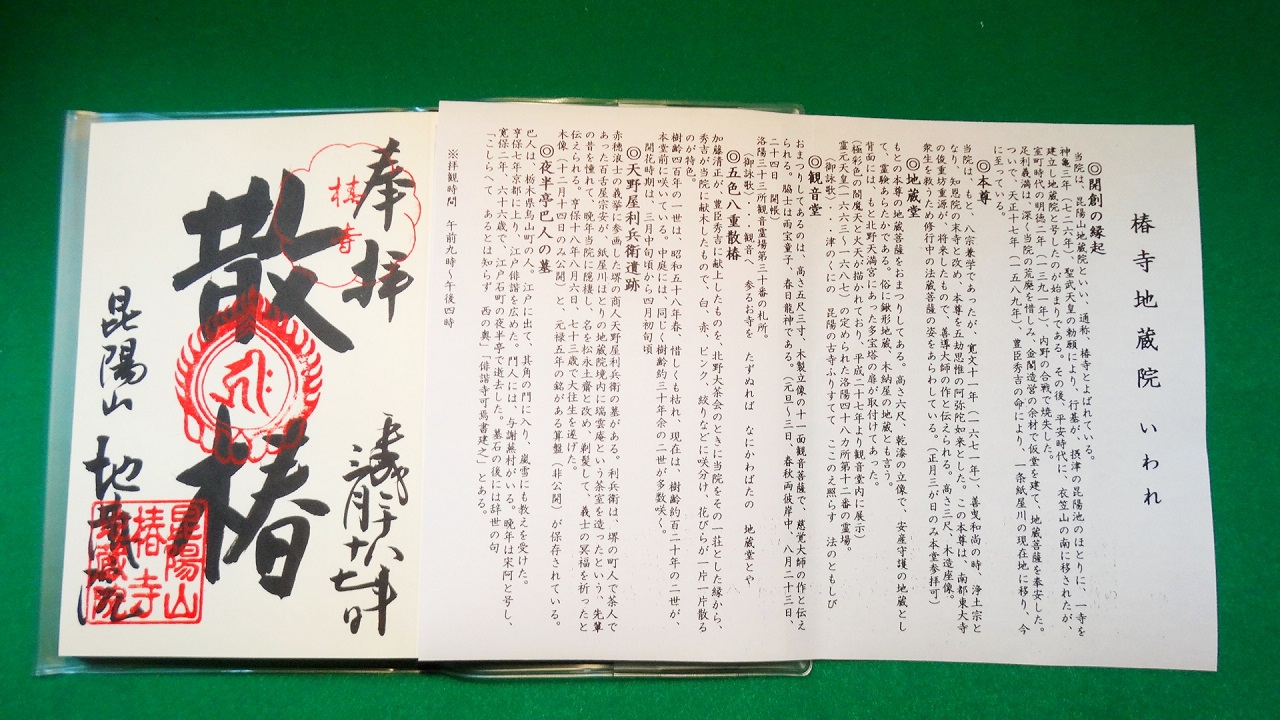 椿寺地蔵院 いわれ
◎開創の縁起
当院は、昆陽山地蔵院といい、通称、椿寺とよばれている。
神亀三年（七二六年）、聖武天皇の勅願により、行基が、摂津の昆陽池のほとりに、一寺を
建立し地蔵院と号したのが始まりである。その後、平安時代に、衣笠山の南に移されたが、
室町時代の明徳二年（一三九一年）、内野の合戦で焼失した。
足利義満は、深く当院の荒廃を惜しみ、金閣造営の余材で仮堂を建て、地蔵菩薩を奉安した。
ついで、天正十七年（一五八九年）、豊臣秀吉の命により、一条紙屋川の現在地に移り、今
に至っている。
◎本尊
当院は、もと、八宗兼学であったが、寛文十一年（一六七一年）、善曳和尚の時、浄土宗と
なり、知恩院の末寺と改め、本尊を五劫思惟の阿弥陀如来とした。この本尊は、南都東大寺
の俊重坊重源が、将来したもので、善導大師の作と伝えられる。高さ三尺、木造座像。
衆生を救うため修行中の法蔵菩薩の姿をあらわしている。（正月三が日のみ本堂参拝可）
◎地蔵堂
もと本尊の地蔵菩薩をおまつりしてある。高さ六尺、乾漆の立像で、安産守護の地蔵とし
て、霊験あらたかである。俗に鍬形地蔵、木納屋の地蔵とも言う。
背面には、もと北野天満宮にあった多宝塔の扉が取付けてあった。
（極彩色の閻魔天と火天が描かれており、平成二十七年より観音堂内に展示）
霊元天皇（一六六三～一六八七）の定められた洛陽四十八カ所第十二番の霊場。
（御詠歌）・・・津のくにの 昆陽の古寺ふりすてて ここのえ照らす 法のともしび
◎観音堂
おまつりしてあるのは、高さ五尺三寸、木製立像の十一面観音菩薩で、慈覚大師の作と伝え
られる。脇士は雨宝童子、春日龍神である。（元旦～三日、春秋両彼岸中、八月二十三日、
二十四日 開帳）
洛陽三十三所観音霊場第三十番の札所。
（御詠歌）・・・観音へ 参るお寺を たずぬれば なにかわばたの 地蔵堂とや
◎五色八重散椿
加藤清正が、豊臣秀吉に献上したものを、北野大茶会のときに当院をその一荘とした縁から、
秀吉が当院に献木したもので、白、赤、ピンク、絞りなどに咲分け、花びらが一片一片散る
のが特色。
樹齢四百年の一世は、昭和五十八年春、惜しくも枯れ、現在は、樹齢約百二十年の二世が、
本堂前に咲いている。中庭には、同じく樹齢約三十年余の二世が多数咲く。
開花時期は、三月中旬頃から四月初旬頃
◎天野屋利兵衛遺跡
赤穂浪士の義挙に参画した堺の商人天野屋利兵衛の墓がある。利兵衛は、堺の町人で茶人で
あった百古屋宗安が、紙屋川ほとりの地蔵院境内に瑞雲庵という茶室を造ったという、先輩
の昔を憧れて、晩年当院に隠棲し、名を松永土斎と改め、剃髪して、義士の冥福を祈ったと
伝えられる。享保十八年八月六日、七十三歳で大往生を遂げた。
木像（十二月十四日のみ公開）と、元禄五年の銘がある算盤（非公開）が保存されている。
◎夜半亭巴人の墓
巴人は、栃木県烏山町の人。江戸に出て、其角の門に入り、嵐雪にも教えを受けた。
享保七年京都に上り、江戸俳諧を広めた。門人には、与謝蕪村がいる。晩年は宋阿と号し、
寛保二年、六十六歳で、江戸石町の夜半亭で逝去した。墓石の後には辞世の句
「こしらへて あるとは知らず 西の奥」「俳諧寺可焉書建之」とある。
※拝観時間 午前九時～午後四時
奉拝
椿寺
散椿
昆陽山 地蔵院
昆陽山
椿寺
地蔵院